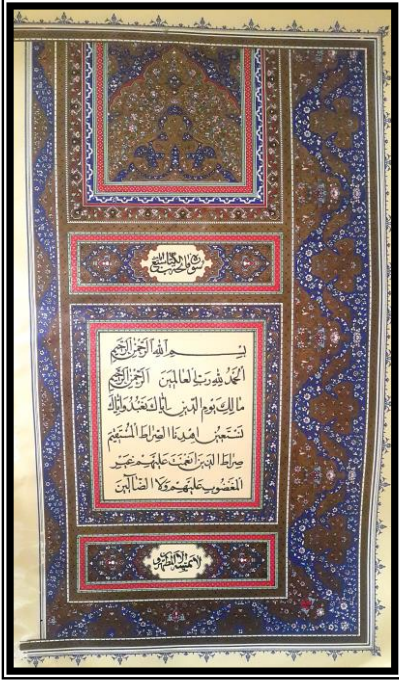 سورة فاتحة الكتاب سبع
بِسْمِ اللهِ الرَّحْمٰنِ الرَّحِيمِ
الْحَمْدُ لِلّهِ رَبِّ الْعَالَمِينَ الرَّحْمٰنِ الرَّحِيمِ
مَالِكِ يَوْمِ الدِّينِ إِيَّاكَ نَعْبُدُ وَإِيَّاكَ
نَسْتَعِينُ اهْدِنَا الصِّرَاطَ الْمُسْتَقِيمَ
صِرَاطَ الَّذِينَ أَنْعَمْتَ عَلَيْهِمْ غَيْرِ
الْمَغْضُوبِ عَلَيْهِمْ وَلَا الضَّالِّينَ
لا يمسه إلا المطهرون